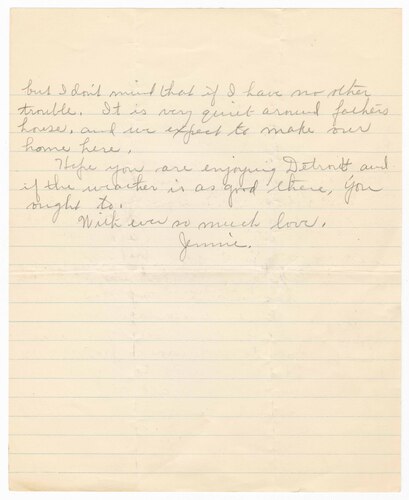 but I don't mind that if I have no other
trouble. It is very quiet around fathers
house, and we expect to make our
home here.
Hope you are enjoying Detroit and
if the weather is as good there, you
ought to.
With ever so much love.
Jennie.